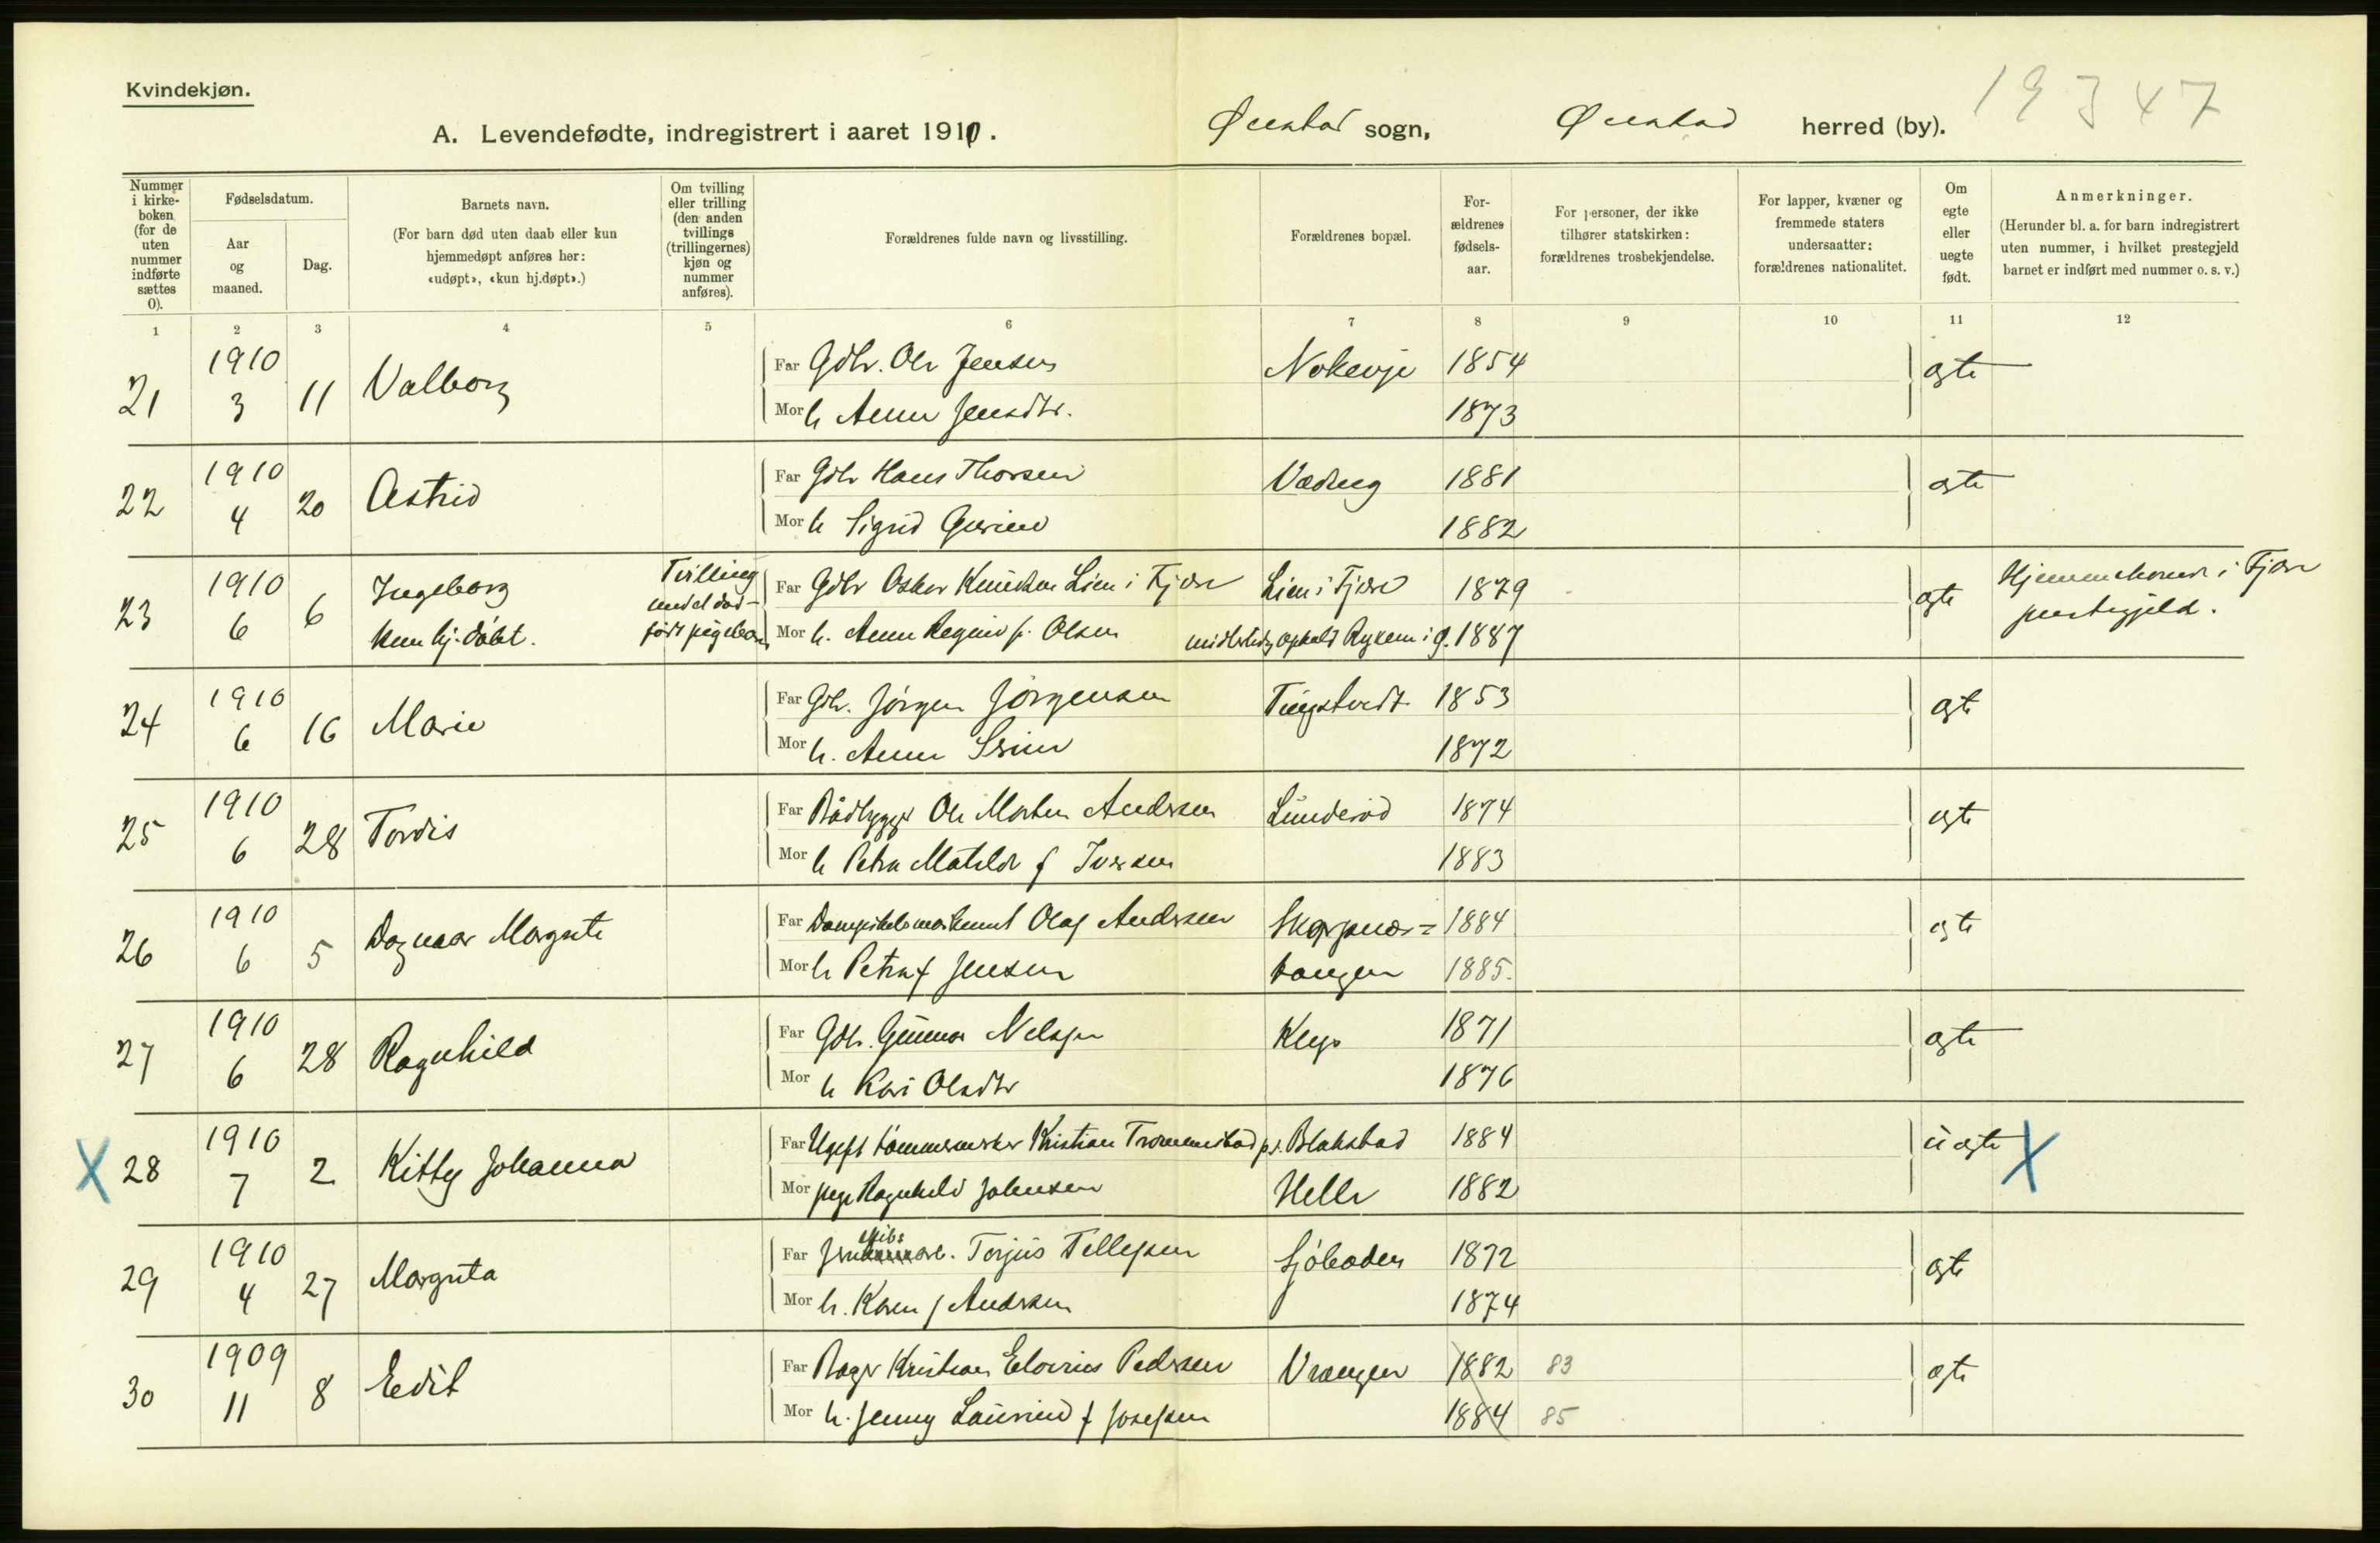 Kvindekjøn.
19347
A. Levendefødte, indregistrert i aaret 1910. Øiestad sogn, Øiestad herred (by).
Nummer i kirkeboken (for de uten nummer indførte sættes 0).
Fødselsdatum.
Aar og maaned.
Dag.
Barnets navn.
(For barn død uten daab eller kun hjemmedøpt anføres her: «udøpt», «kun hj.døpt».)
Om tvilling eller trilling (den anden tvillings (trillingernes) kjøn og nummer anføres).
Forældrenes fulde navn og livsstilling.
Forældrenes bopæl.
Forældrenes fødselsaar.
For personer, der ikke tilhører statskirken: forældrenes trosbekjendelse.
For lapper, kvæner og fremmede staters undersaatter: forældrenes nationalitet.
Om egte eller uegte født.
Anmerkninger.
(Herunder bl. a. for barn indregistrert uten nummer, i hvilket prestegjeld barnet er indført med nummer o. s. v.)
1 2 3 4 5 6 7 8 9 10 11 12
21 1910 3 11 Valborg Far Gdbr. Ole Jensen 1854 egte
Mor h Anna Jensdtr. 1873
22 1910 4 20 Astrid Far Gdbr Hans Thorsen 1881 egte
Mor h Sigrid 1882
23 1910 6 6 Ingeborg Tvilling med et død- Far Gdbr Oskar Knudsen Lien i Fjære Lien i Fjære 1879 egte Hjemmehørende i Fjære
kun hj. døbt. født pigebarn Mor h. Anna Regine f. Olsen midlertidig ophold Rykene i Ø. 1887 prestegjeld.
24 1910 6 16 Marie Far Gdbr. Jørgen Jørgensen Tingstvedt 1853 egte
Mor h. Anna 1872
25 1910 6 28 Tordis Far Bådbygger Ole Morten Andersen Lunderød 1874 egte
Mor h Petra Matilde f Iversen 1883
26 1910 6 5 Dagmar Margrete Far Dampskibsmaskinist Olaf Andersen Skarpnes= 1884 egte
Mor h Petra f Jensen tangen 1885.
27 1910 6 28 Ragnhild Far Gdbr. Gunnar Nelsen 1871 egte
Mor h Kari Olsdtr 1876
X 28 1910 7 2 Kitty Johanna Far Ugift tømmermker Kristian Trommestad p.t. Blakstad 1884 uegte X
Mor pige Ragnhild Johnsen Helle 1882
29 1910 4 27 Margreta Far skibs Torjus Tellefsen Sjøboden 1872 egte
Mor h. Karen f Andersen 1874
30 1909 11 8 Edit Far Bager Kristian Pedersen Vrængen 1882 83 egte
Mor h. Jenny Laurine f Josefsen 1884 85